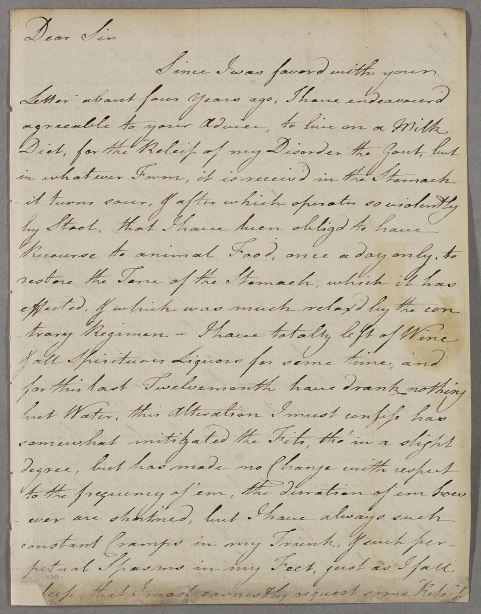 Dear Sir
Since I was favord with your
Letter about four years ago, I have endeavourd
agreeable to your Advice, to live on a Milk
Diet, for the Releif of my Disorder the Gout, but
in whatever Form, it is receiv'd in the Stomach
it turns sour, & after which operates so violently
by Stool, that I have been oblig'd to have
Recourse to animal Food, once a day only, to
restore the Tone of the Stomach, which it has
effected, & which was much relax'd by the con
trary Regimen - I have totally left of Wine
& all Spirituous Liquors for some time, and
for this last Twelvemonth have drank nothing
but Water, this Alteration I must confess has
somewhat mitigated the Fits, tho' in a slight
degree, but has made no Change with respect
to the frequency of 'em, the duration of em how
ever are shortned, but I have always such
constant Cramps in my Trunk, & such per-
petual Spasms in my Feet, just as I fall
that I most earnestly request some Releif